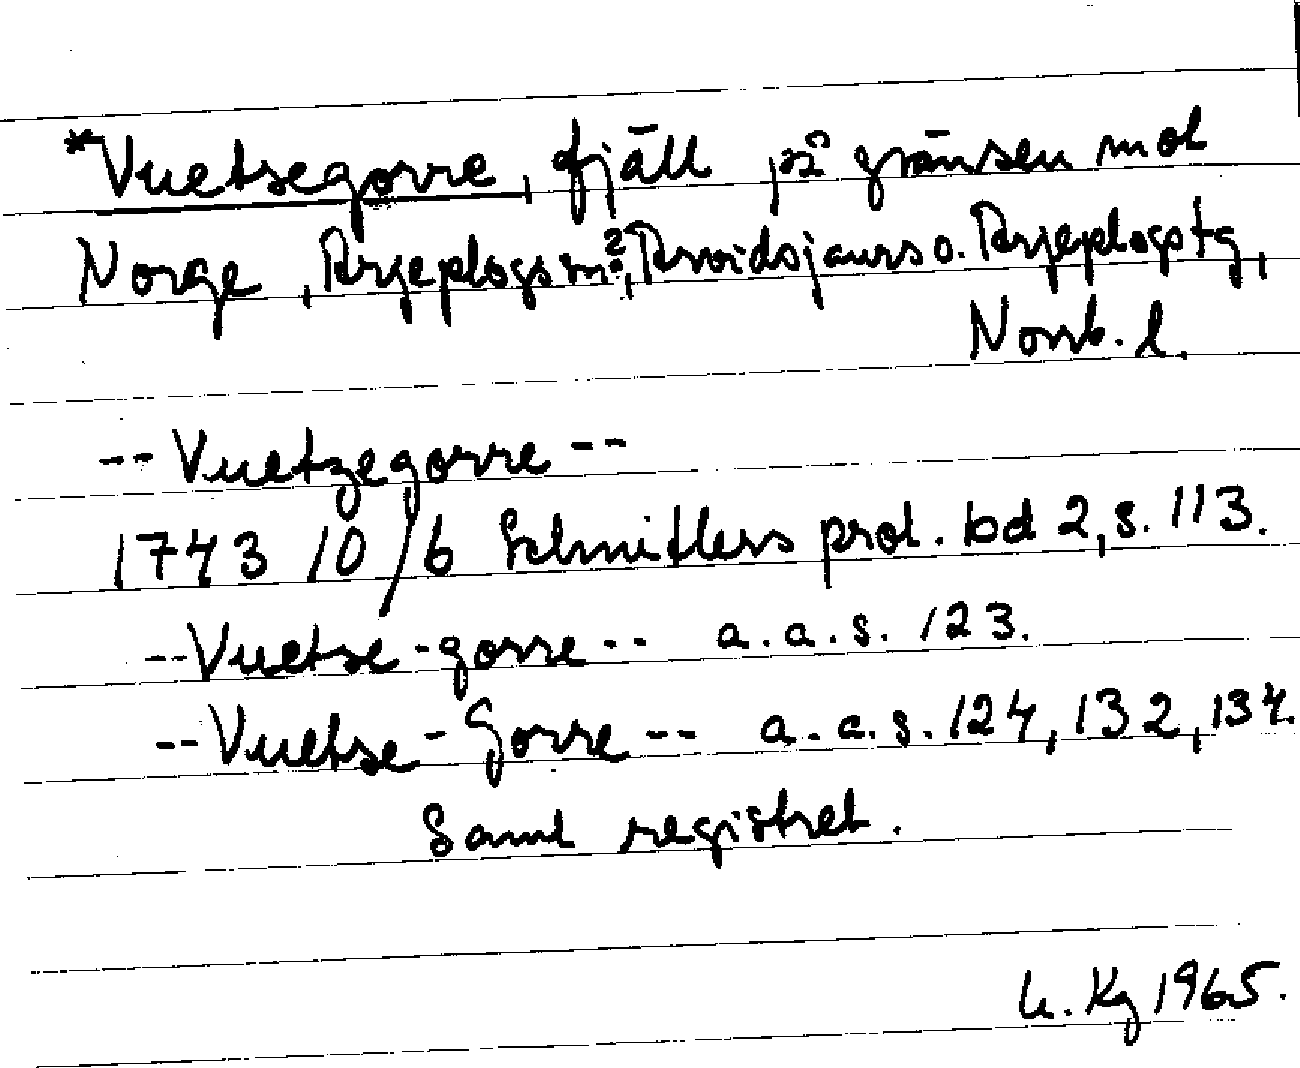 *Vuetsegorre, fjäll på gränsen mot
Norge, Arjeplogs sn?, Arvidsjaurs o. Arjeplogs tg,
Norrb. l.
-- Vuetzegorre --
1743 10/6 Schnitlers prot. bd 2, s. 113.
-- Vuetse-gorre -- a. a. s. 123.
-- Vuetse-Gorre -- a. a. s. 124, 132, 134.
Samt registret.
Kg 1965.